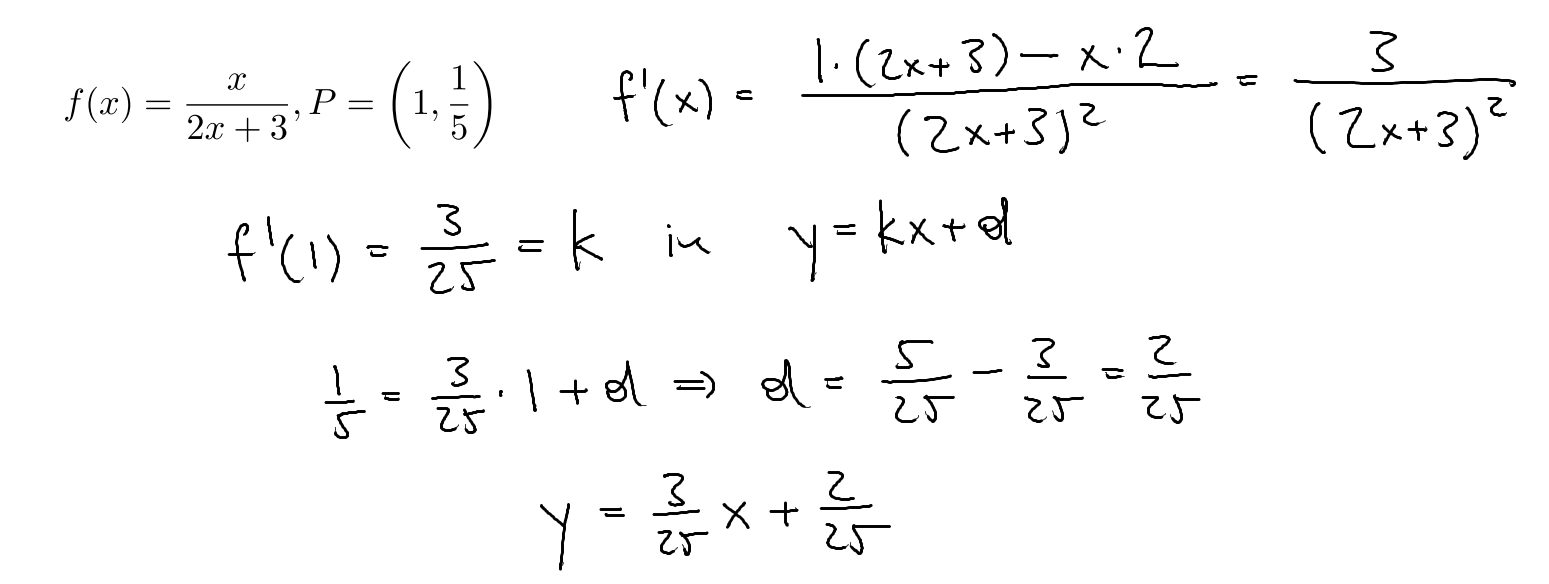 f(x) = x/(2x + 3), P = (1, 1/5) f'(x) = (1·(2x+3) − x·2)/(2x+3)² = 3/(2x+3)²
f'(1) = 3/25 = k in y = kx + d
1/5 = 3/25 · 1 + d ⇒ d = 5/25 − 3/25 = 2/25
y = 3/25 x + 2/25